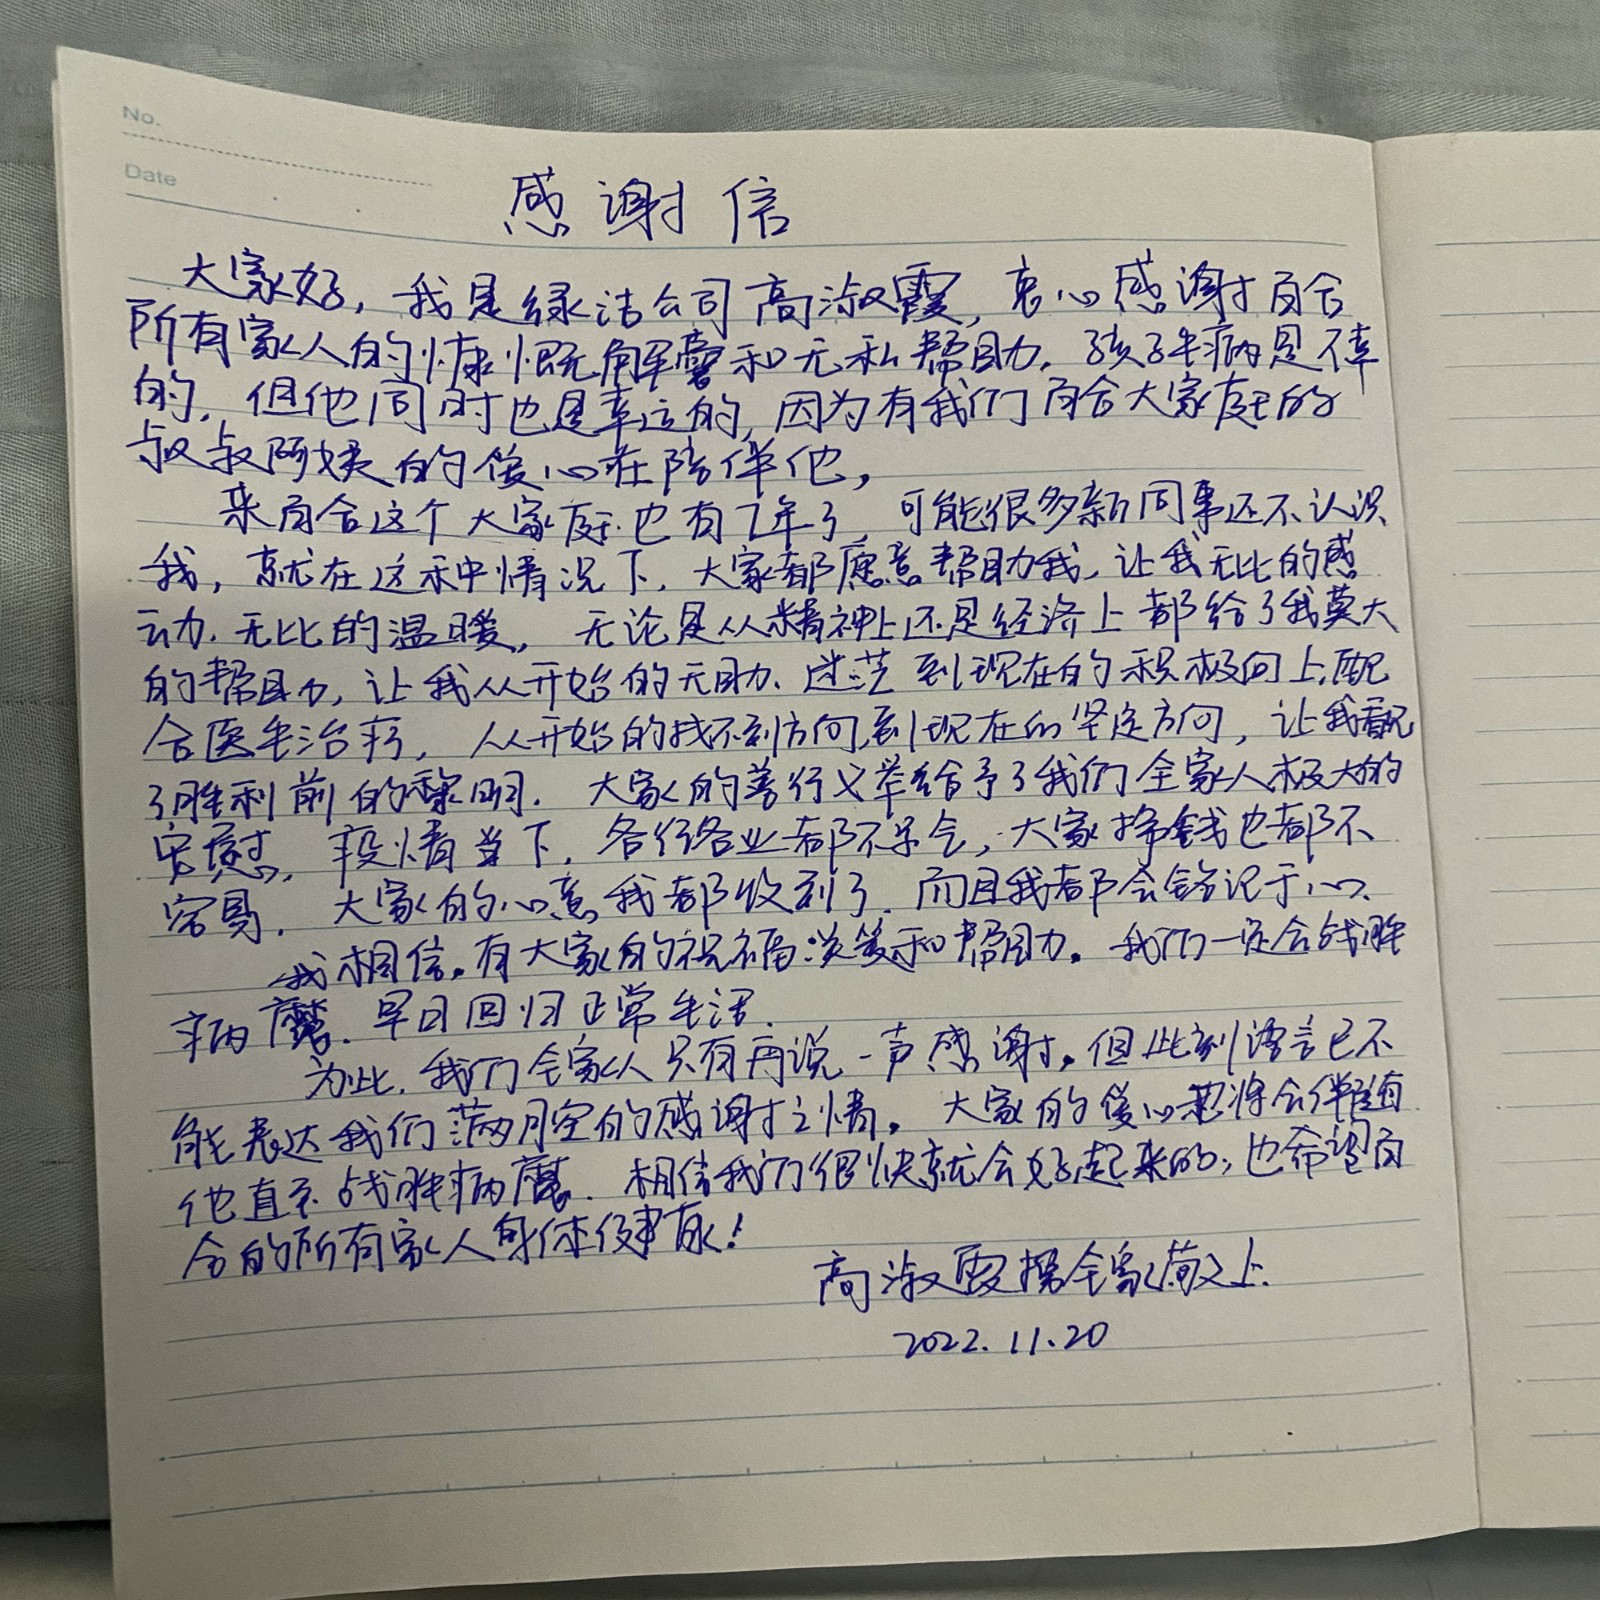 No.
Date
感谢信
大家好,我是绿洁公司高淑霞,衷心感谢百合
所有家人的慷慨解囊和无私帮助.孩子生病是不幸
的,但他同时也是幸运的,因为有我们百合大家庭的
叔叔阿姨的爱心在陪伴他,
来百合这个大家庭也有7年了,可能很多新同事还不认识
我,就在这种情况下,大家都愿意帮助我,让我无比的感
动.无比的温暖,无论是从精神上还是经济上都给了我莫大
的帮助,让我从开始的无助、迷茫到现在的积极向上,配
合医生治疗,从开始的找不到方向,到现在的坚定方向,让我看见
了胜利前的黎明.大家的善行义举给予了我们全家人极大的
安慰,疫情当下,各行各业都不景气,大家挣钱也都不
容易,大家的心意我都收到了.而且我都会铭记于心.
我相信。有大家的祝福关爱和帮助。我们一定会战胜
病魔.早日回归正常生活.
为此,我们全家人只有再说一声感谢。但此刻语言已不
能表达我们满腔的感谢之情。大家的爱心将会伴随着
他直至战胜病魔.相信我们很快就会好起来的;也希望百
合的所有家人身体健康!
高淑霞携全家敬上.
2022.11.20